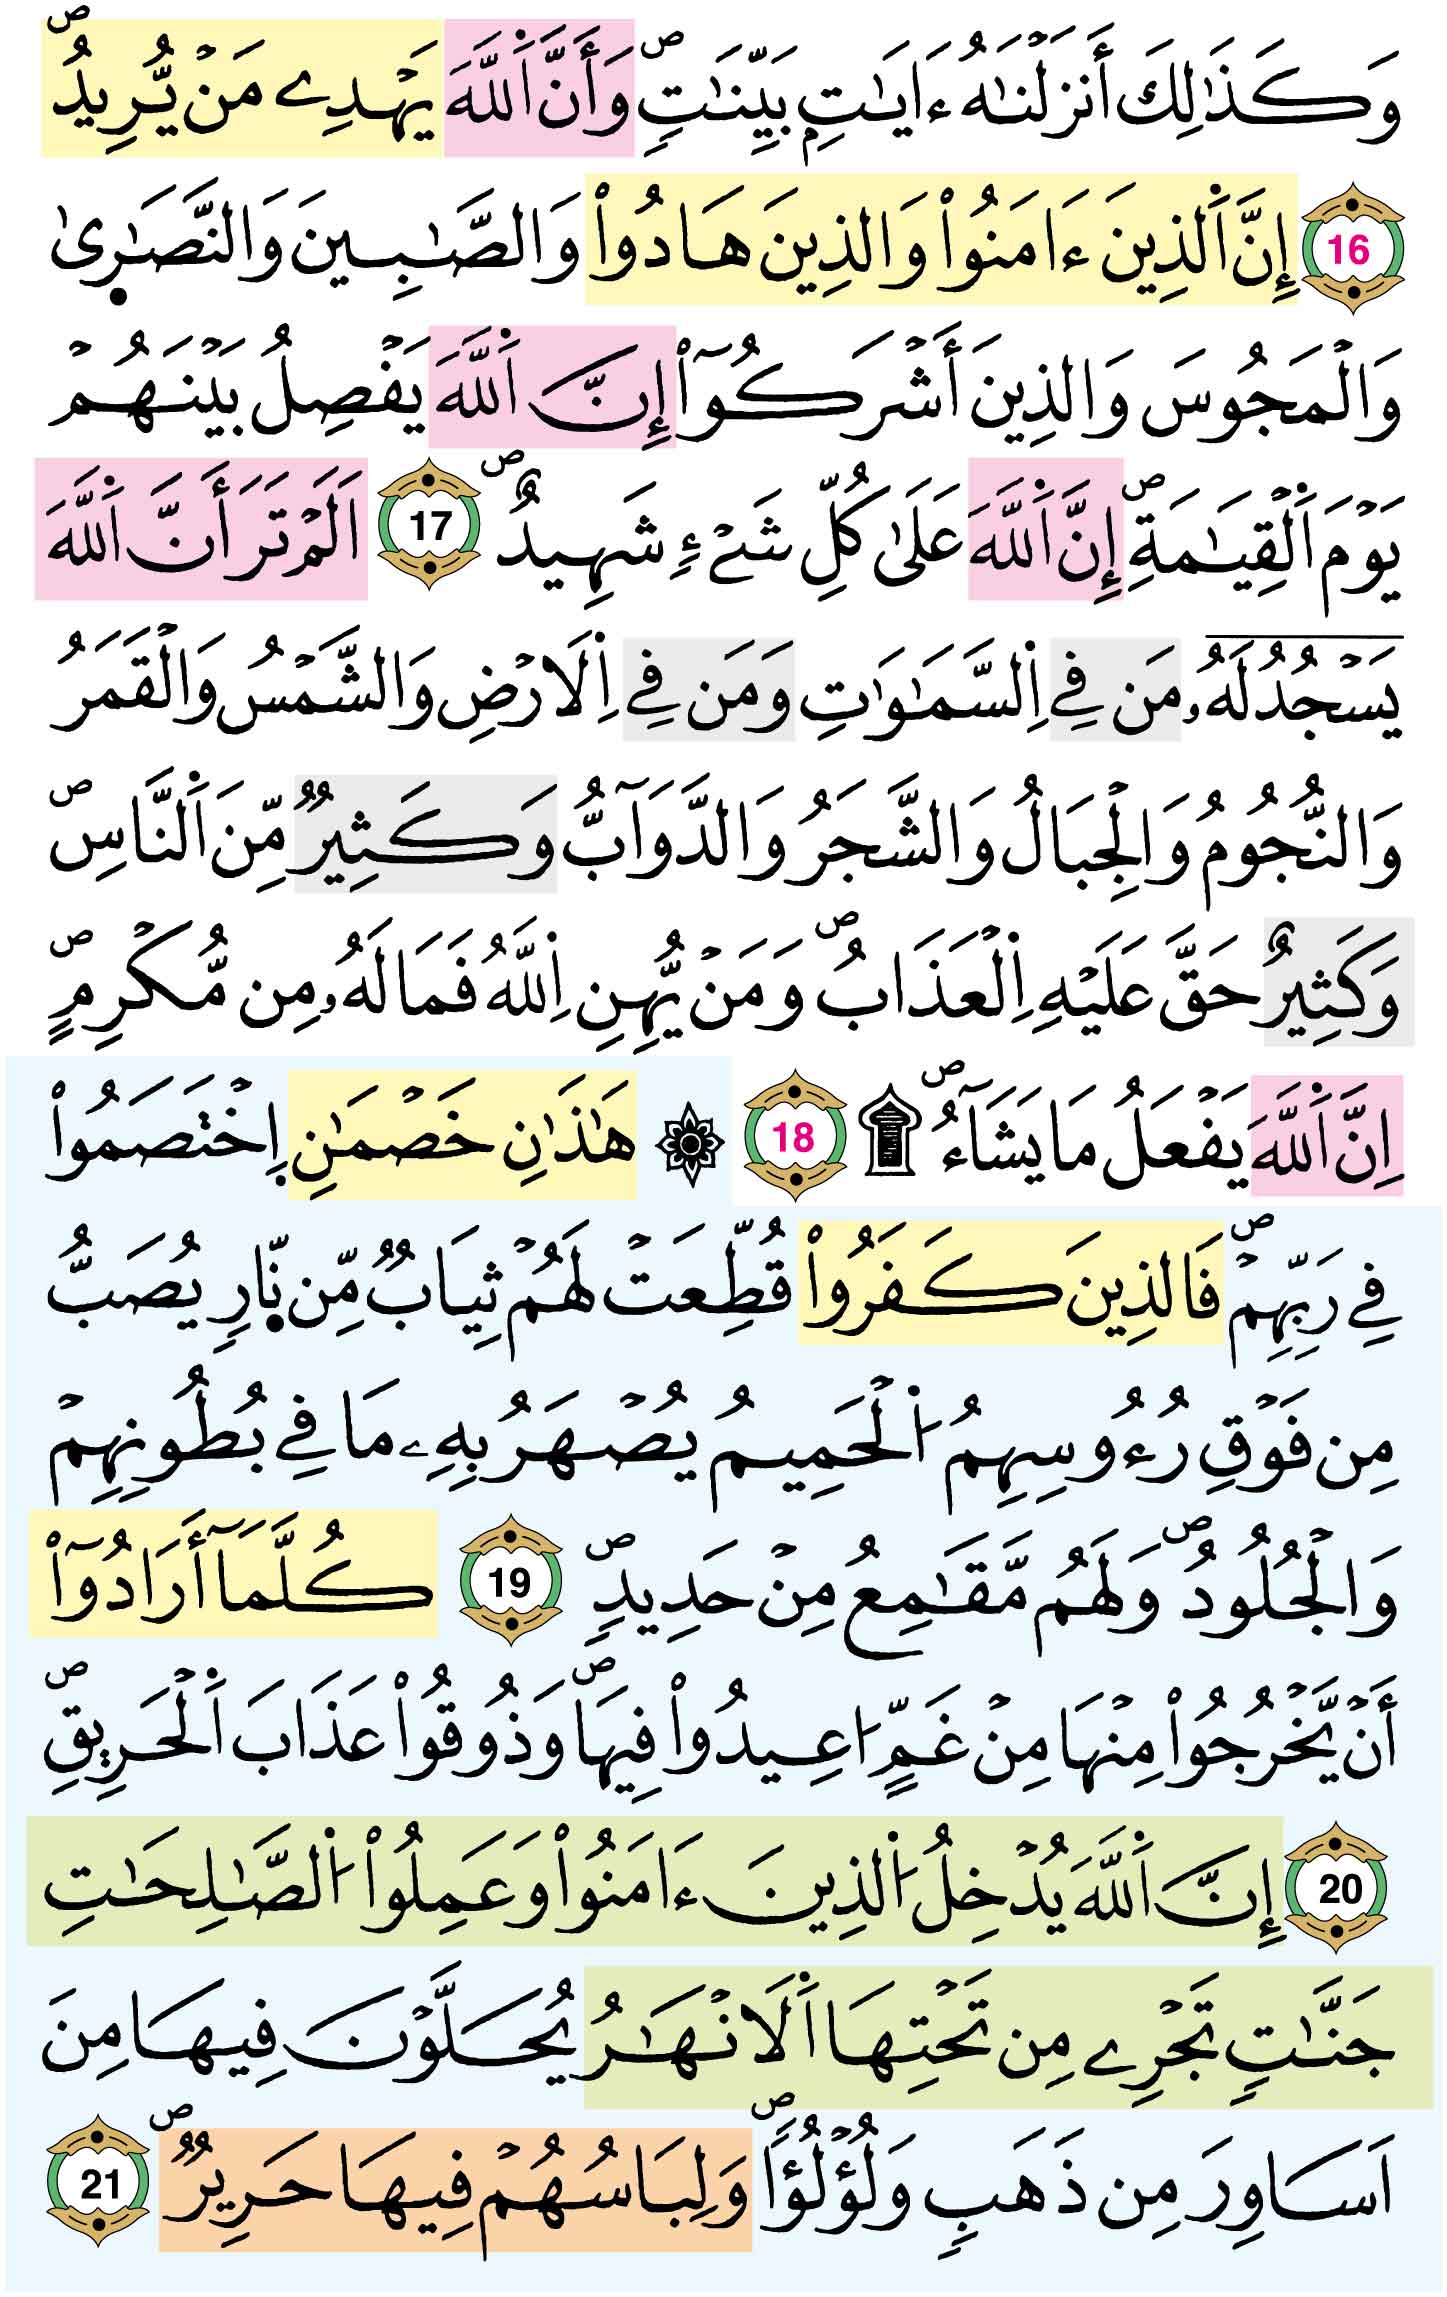 وَكَذَٰلِكَ أَنزَلْنَٰهُ ءَايَٰتِۢ بَيِّنَٰتٖۖ وَأَنَّ اَ۬للَّهَ يَهْدِے مَنْ يُّرِيدُۖ
16 إِنَّ اَ۬لذِينَ ءَامَنُواْ وَالذِينَ هَادُواْ وَالصَّٰبِينَ وَالنَّصَٰر۪ىٰ
وَالْمَجُوسَ وَالذِينَ أَشْرَكُوٓاْ إِنَّ اَ۬للَّهَ يَفْصِلُ بَيْنَهُمْ
يَوْمَ اَ۬لْقِيَٰمَةِۖ إِنَّ اَ۬للَّهَ عَلَىٰ كُلِّ شَےْءٖ شَهِيدٌۖ 17 اَلَمْ تَرَ أَنَّ اَ۬للَّهَ
يَسْجُدُ لَهُۥ مَن فِے اِ۬لسَّمَٰوَٰتِ وَمَن فِے اِ۬لَارْضِ وَالشَّمْسُ وَالْقَمَرُ
وَالنُّجُومُ وَالْجِبَالُ وَالشَّجَرُ وَالدَّوَآبُّ وَكَثِيرٞ مِّنَ اَ۬لنَّاسِۖ
وَكَثِيرٌ حَقَّ عَلَيْهِ اِ۬لْعَذَابُۖ وَمَنْ يُّهِنِ اِ۬للَّهُ فَمَا لَهُۥ مِن مُّكْرِمٍۖ
اِنَّ اَ۬للَّهَ يَفْعَلُ مَا يَشَآءُۖ ۩ 18 ۞ هَٰذَٰنِ خَصْمَٰنِ اِ۪خْتَصَمُواْ
فِے رَبِّهِمْۖ فَالذِينَ كَفَرُواْ قُطِّعَتْ لَهُمْ ثِيَابٞ مِّن نّ۪ارٖ يُصَبُّ
مِن فَوْقِ رُءُوسِهِمُ اُ۬لْحَمِيمُ يُصْهَرُ بِهِۦ مَا فِے بُطُونِهِمْ
وَالْجُلُودُۖ وَلَهُم مَّقَٰمِعُ مِنْ حَدِيدٖۖ 19 كُلَّمَآ أَرَادُوٓاْ
أَنْ يَّخْرُجُواْ مِنْهَا مِنْ غَمٍّ ا۟عِيدُواْ فِيهَاۖ وَذُوقُواْ عَذَابَ اَ۬لْحَرِيقِۖ
20 إِنَّ اَ۬للَّهَ يُدْخِلُ اُ۬لذِينَ ءَامَنُواْ وَعَمِلُواْ اُ۬لصَّٰلِحَٰتِ
جَنَّٰتٖ تَجْرِے مِن تَحْتِهَا اَ۬لَانْهَٰرُ يُحَلَّوْنَ فِيهَا مِنَ
اَسَاوِرَ مِن ذَهَبٖ وَلُؤْلُؤاٗۖ وَلِبَاسُهُمْ فِيهَا حَرِيرٞۖ 21